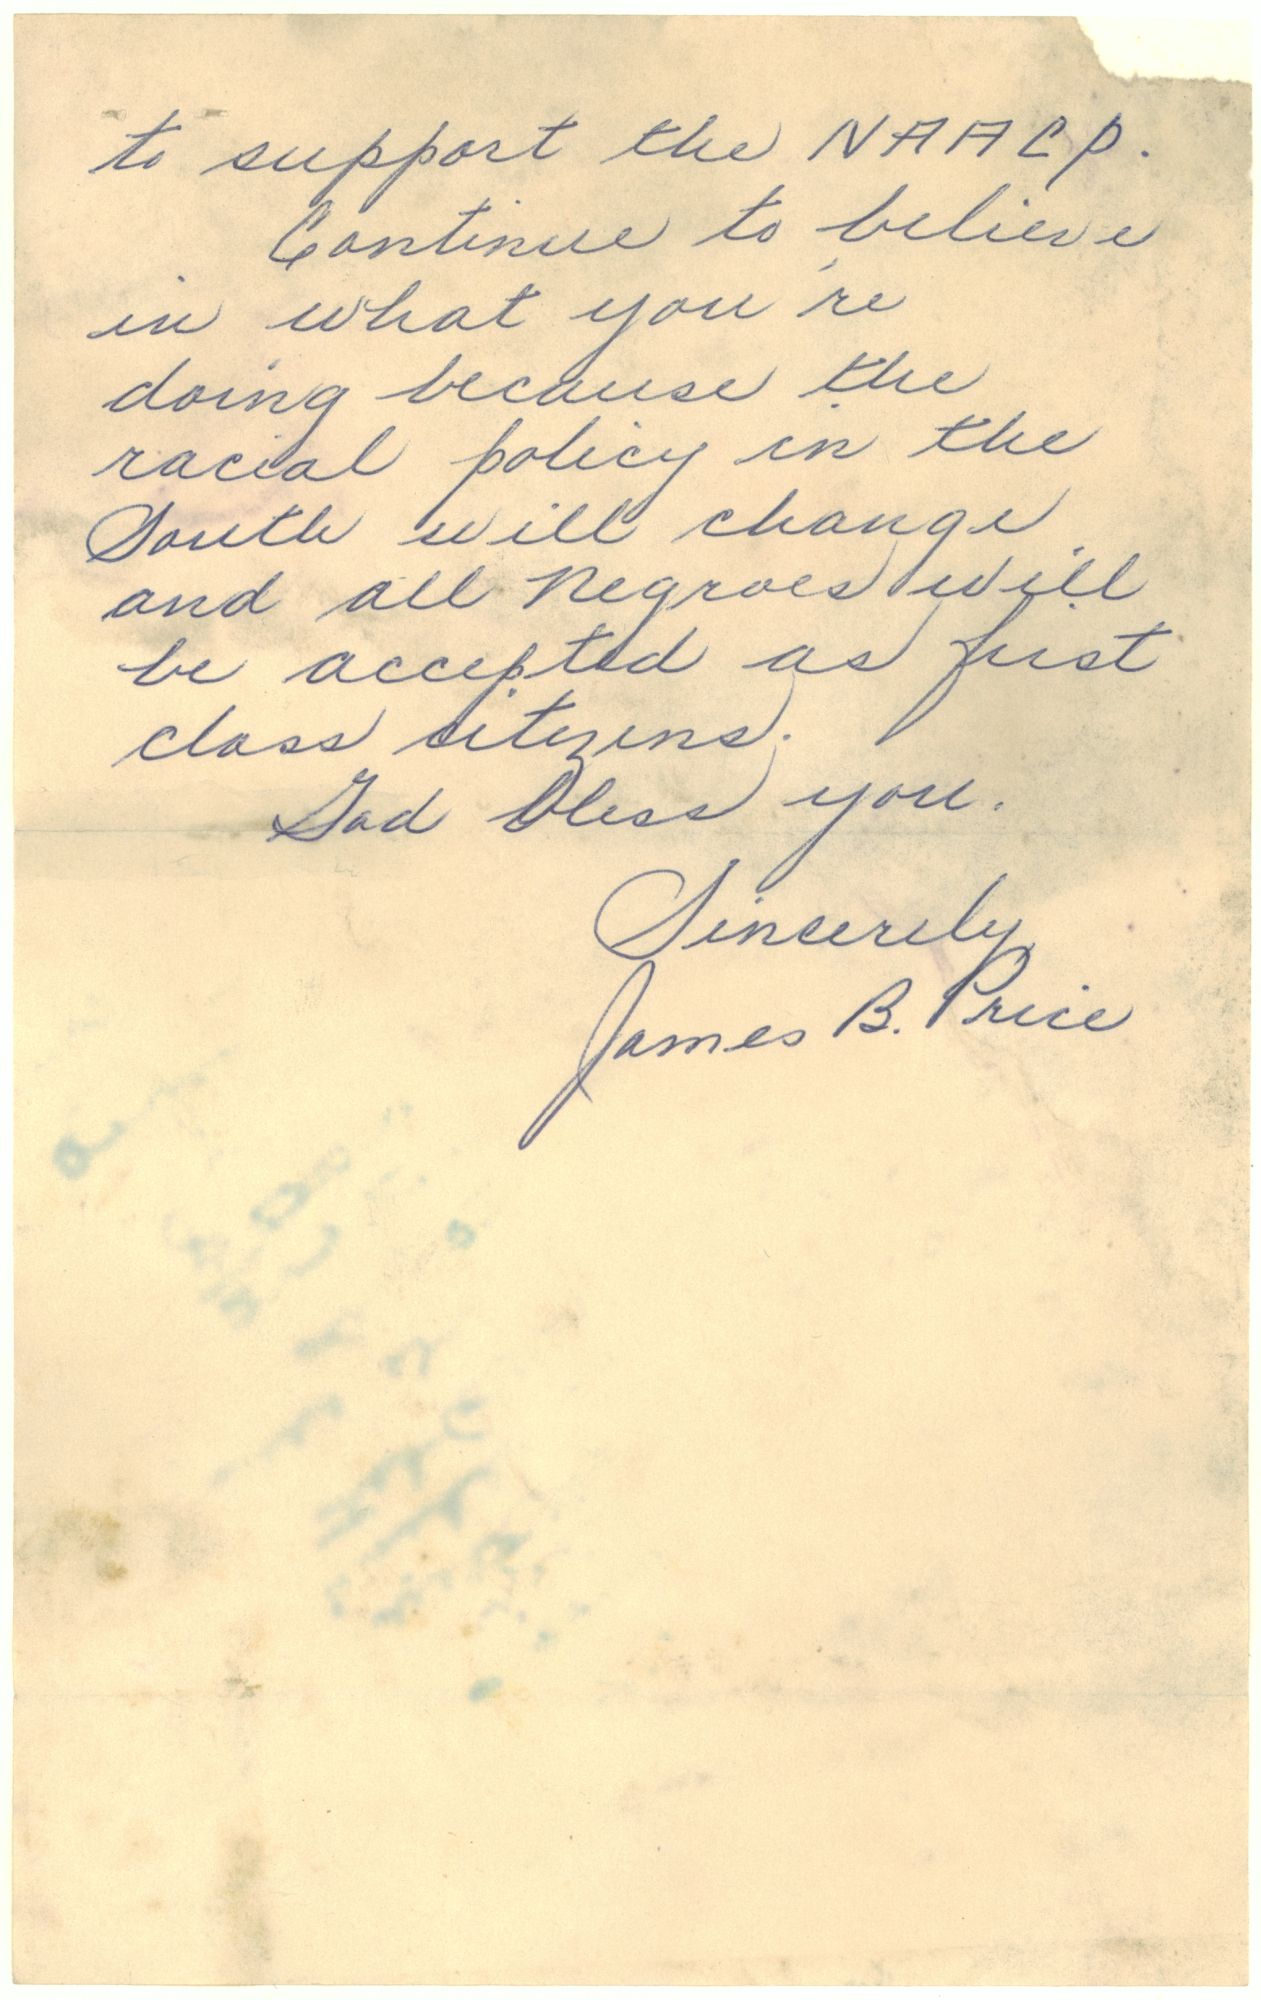 to support the NAACP.
Continue to believe
in what you're
doing because the
racial policy in the
South will change
and all Negroes will
be accepted as first
class citizens.
God bless you.
Sincerely,
James B. Price